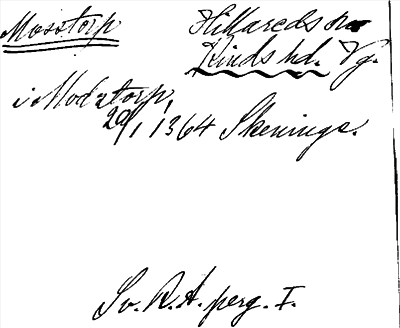 Mosstorp
Hillareds sn
Kinds hd. Vg.
i Modatorp,
29/1 1364 Skeninge.
Sv. R. A. perg. I.